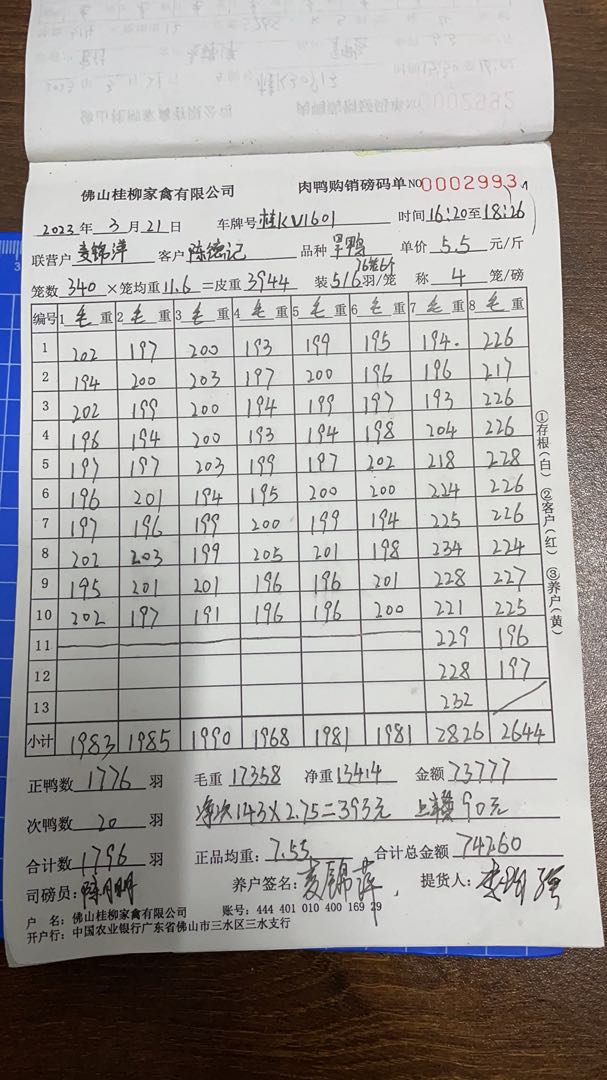 佛山桂柳家禽有限公司 肉鸭购销磅码单 NO 0002993
2023 年 3 月 21 日 车牌号 桂KV1601 时间 16:20 至 18:26
联营户 麦锦萍 客户 陈德记 品种 旱鸭 单价 5.5 元/斤
笼数 340 ×笼均重 11.6 =皮重 3944 装 5/6 羽/笼 称 4 笼/磅
编号 1 毛 重 2 毛 重 3 毛 重 4 毛 重 5 毛 重 6 毛 重 7 毛 重 8 毛 重
1 202 197 200 193 199 195 194. 226
2 194 200 203 197 200 196 196 217
3 202 199 200 194 199 197 193 226
4 196 194 200 193 194 198 204 226
5 197 197 203 199 197 202 218 228
6 196 201 194 195 200 200 224 226
7 197 196 199 200 199 194 225 226
8 202 203 199 205 201 198 234 224
9 195 201 201 196 196 201 228 227
10 202 197 191 196 196 200 221 225
11 229 196
12 228 197
13 232
小计 1983 1985 1990 1968 1981 1981 2826 2644
正鸭数 1776 羽 毛重 17358 净重 13414 金额 73777
次鸭数 20 羽 净次143×2.75=393元 90元
合计数 1796 羽 正品均重: 7.55 合计总金额 74260
司磅员: 养户签名: 麦锦萍 提货人:
户 名: 佛山桂柳家禽有限公司 账号: 444 401 010 400 169 29
开户行: 中国农业银行广东省佛山市三水区三水支行
①存根(白) ②客户(红) ③养户(黄)